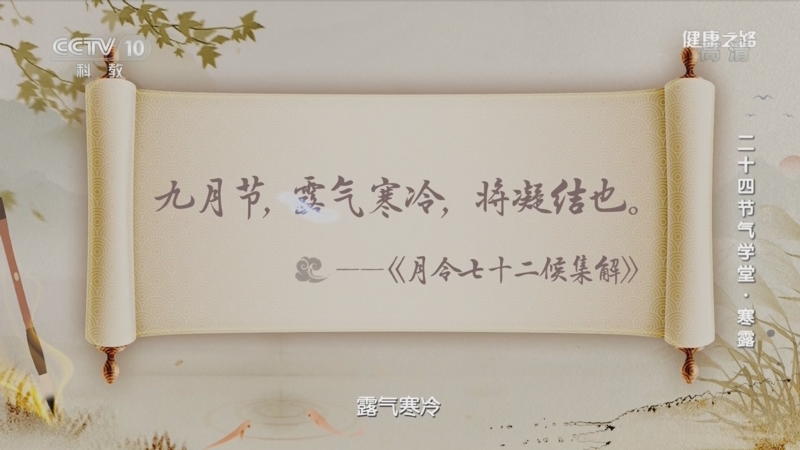 CCTV 10
科教
健康之路
高清
九月节，露气寒冷，将凝结也。
——《月令七十二候集解》
二十四节气学堂·寒露
露气寒冷